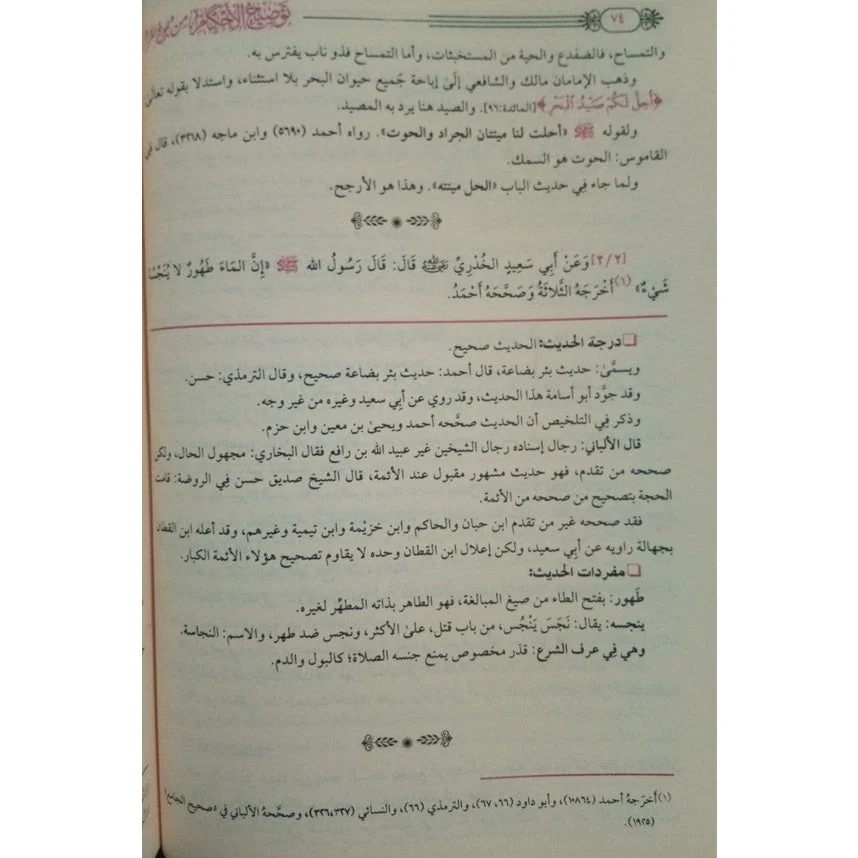 ٧٤
توضيح الأحكام من بلوغ المرام
والتمساح، فالضفدع والحية من المستخبثات، وأما التمساح فذو ناب يفترس به.
وذهب الإمامان مالك والشافعي إلَىٰ إباحة جَميع حيوان البحر بلا استثناء، واستدلا بقوله تعالَىٰ
﴿أُحِلَّ لَكُمْ صَيْدُ الْبَحْرِ﴾ [المائدة:٩٦]. والصيد هنا يرد به المصيد.
ولقوله ﷺ «أحلت لنا ميتتان الجراد والحوت». رواه أحمد (٥٦٩٠) وابن ماجه (٣٢٦٨)، قال فِي
القاموس: الحوت هو السمك.
ولما جاء فِي حديث الباب «الحل ميتته». وهذا هو الأرجح.
[٢/٢] وَعَنْ أَبِي سَعِيدٍ الخُدْرِيِّ رضي الله عنه قَالَ: قَالَ رَسُولُ الله ﷺ «إِنَّ المَاءَ طَهُورٌ لا يُنَجِّسُهُ
شَيْءٌ» (١) أَخْرَجَهُ الثَّلاثَةُ وَصَحَّحَهُ أَحْمَدُ.
❑ درجة الحديث: الحديث صحيح.
ويسمَّىٰ: حديث بئر بضاعة، قال أحمد: حديث بئر بضاعة صحيح، وقال الترمذي: حسن.
وقد جوَّد أبو أسامة هذا الحديث، وقد روي عن أبِي سعيد وغيره من غير وجه.
وذكر فِي التلخيص أن الحديث صحَّحه أحمد ويحيَىٰ بن معين وابن حزم.
قال الألباني: رجال إسناده رجال الشيخين غير عبيد الله بن رافع فقال البخاري: مجهول الحال، ولكن
صححه من تقدم، فهو حديث مشهور مقبول عند الأئمة، قال الشيخ صديق حسن فِي الروضة: قامت
الحجة بتصحيح من صححه من الأئمة.
فقد صححه غير من تقدم ابن حبان والحاكم وابن خزيْمة وابن تيمية وغيرهم، وقد أعله ابن القطان
بجهالة راويه عن أبِي سعيد، ولكن إعلال ابن القطان وحده لا يقاوم تصحيح هؤلاء الأئمة الكبار.
❑ مفردات الحديث:
طَهور: بفتح الطاء من صيغ المبالغة، فهو الطاهر بذاته المطهِّر لغيره.
ينجسه: يقال: نَجَسَ يَنْجُس، من باب قتل، علىٰ الأكثر، ونجس ضد طهر، والاسم: النجاسة.
وهي فِي عرف الشرع: قذر مخصوص يمنع جنسه الصلاة؛ كالبول والدم.
(١) أخرَجهُ أحمد (١٠٨٦٤)، وأبو داود (٦٦، ٦٧)، والترمذي (٦٦)، والنسائي (٣٢٦،٣٢٧)، وصحَّحهُ الألباني فِي «صحيح الجامع»
(١٩٢٥).